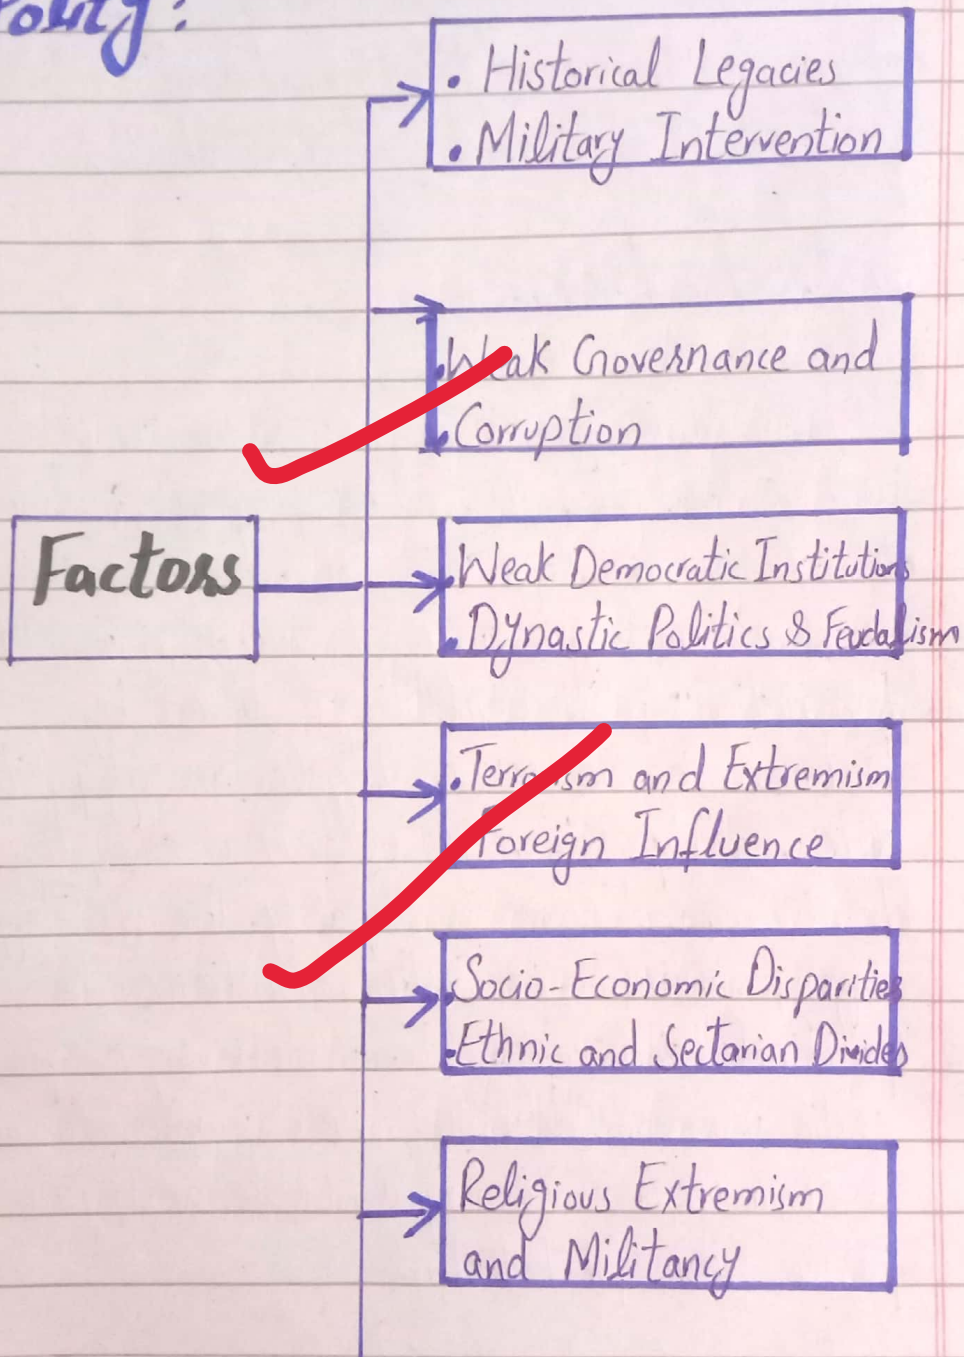 • Historical Legacies
• Military Intervention
• Weak Governance and
• Corruption
Factors
• Weak Democratic Institutions
• Dynastic Politics & Feudalism
• Terrorism and Extremism
Foreign Influence
• Socio-Economic Disparities
• Ethnic and Sectarian Divides
Religious Extremism
and Militancy